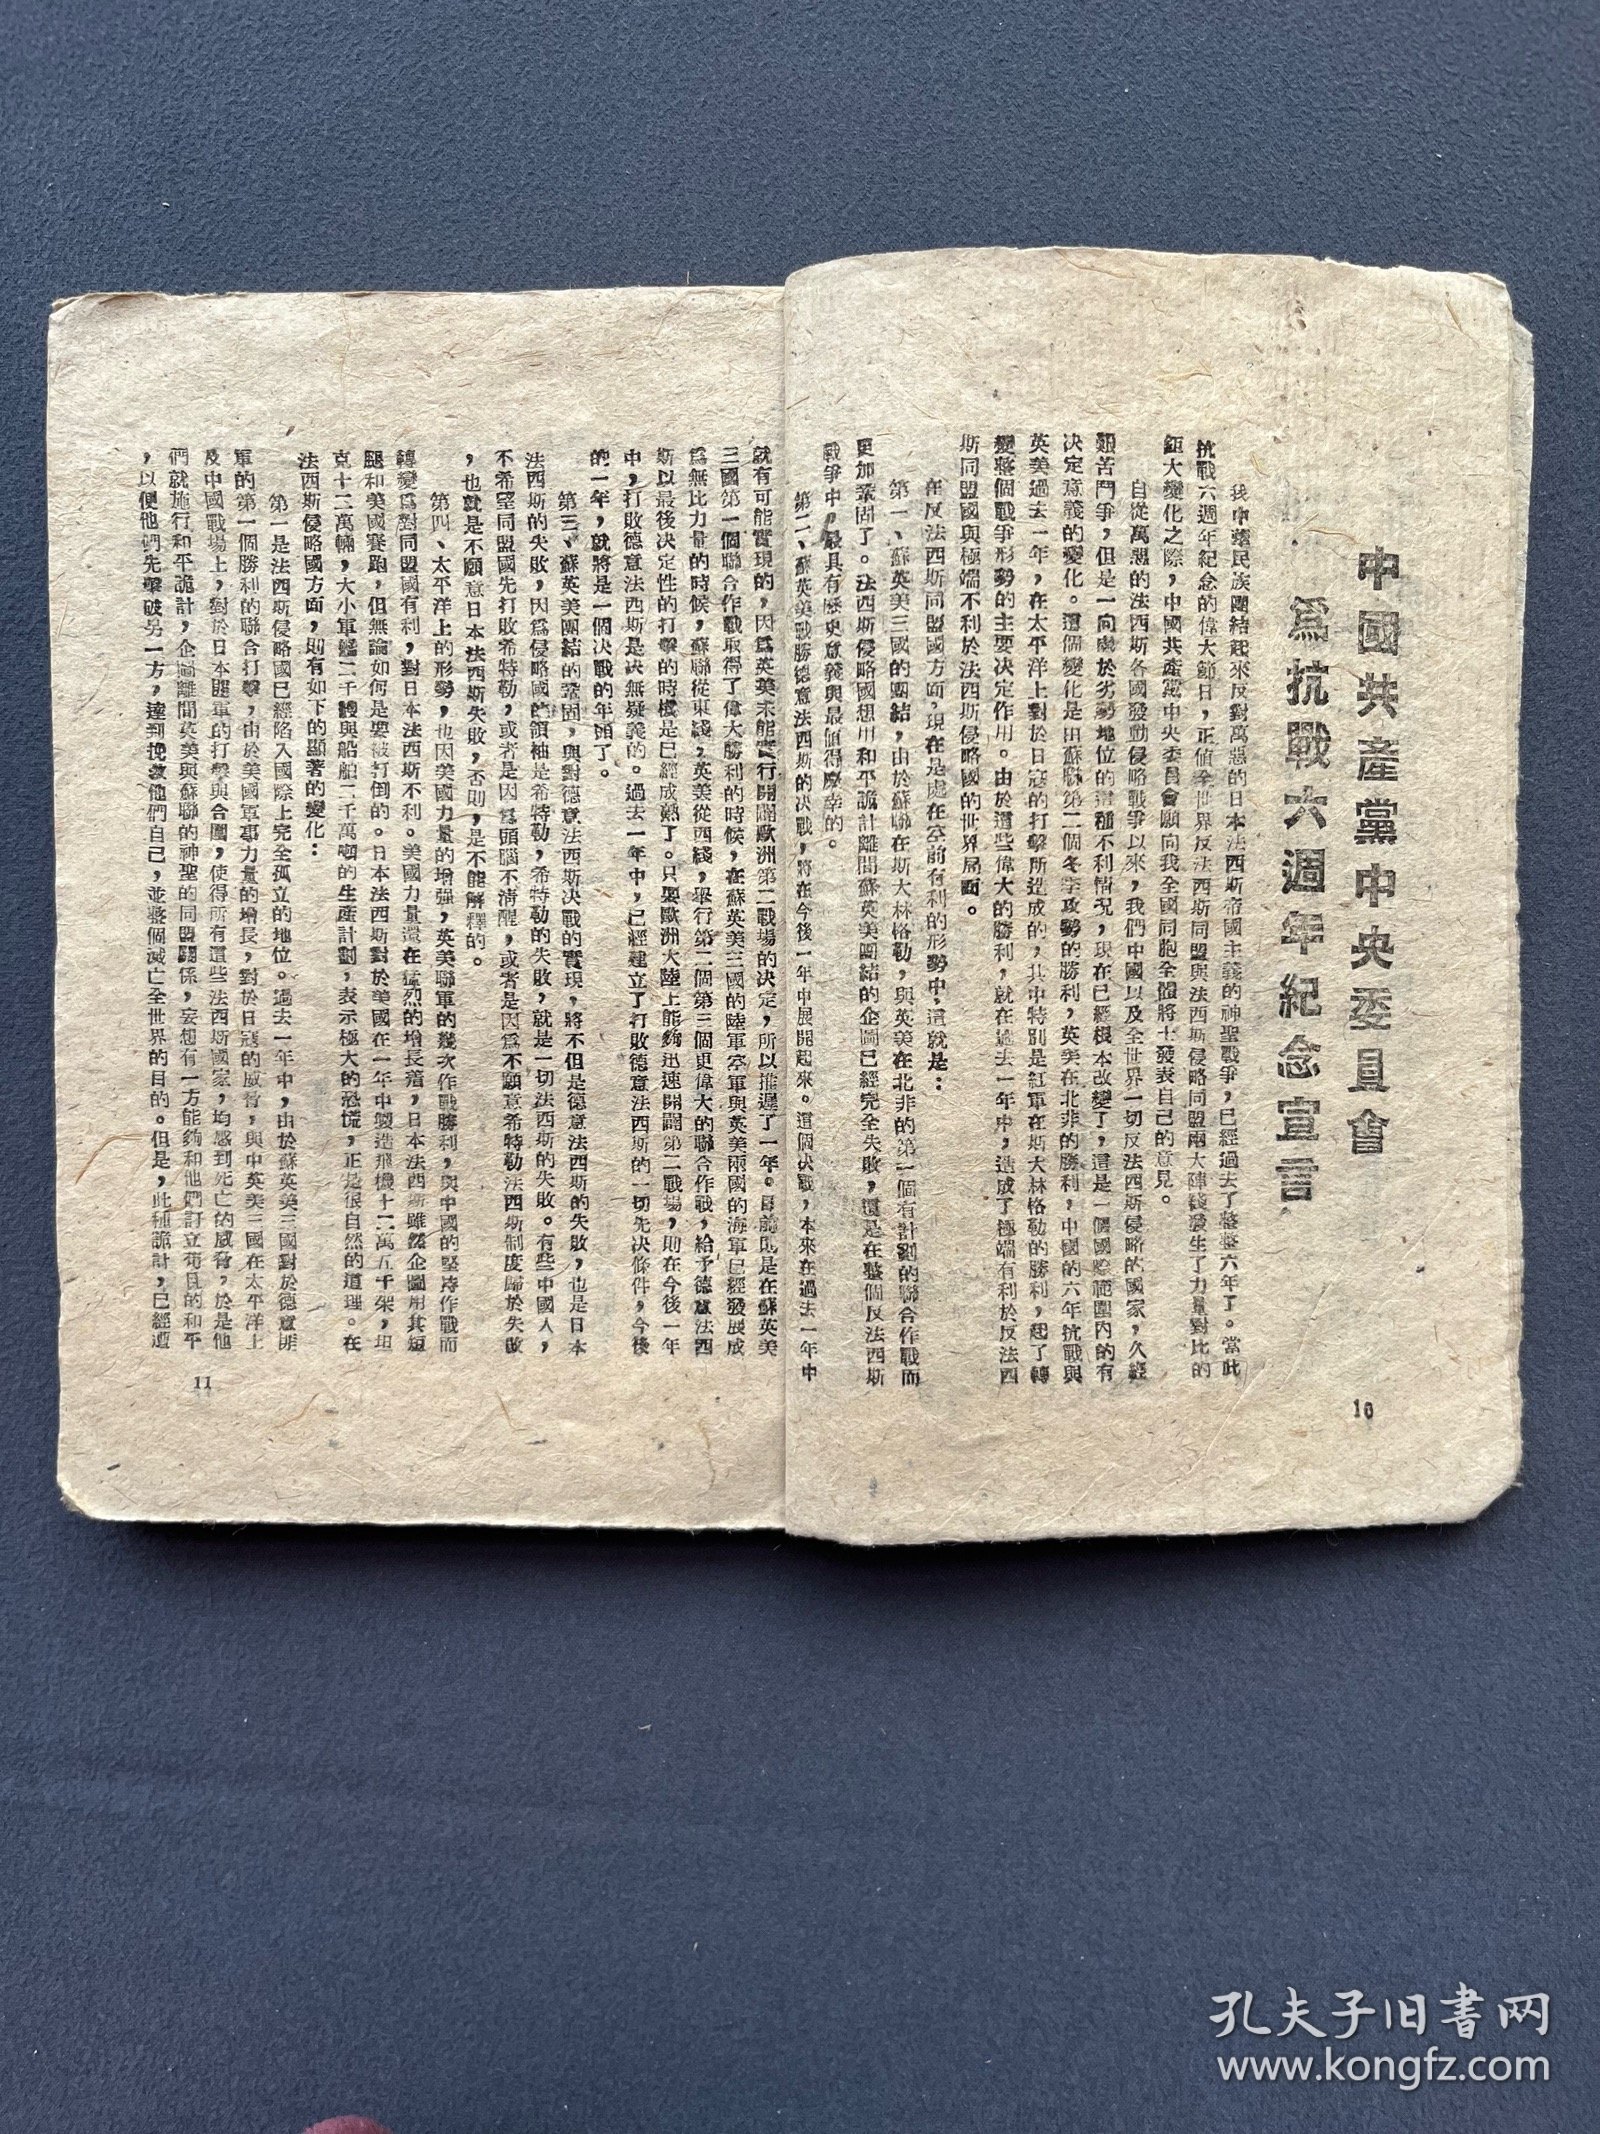 中國共產黨中央委員會
爲抗戰六週年紀念宣言
我中華民族團結起來反對萬惡的日本法西斯帝國主義的神聖戰爭，已經過去了整整六年了。當此
抗戰六週年紀念的偉大節日，正値全世界反法西斯同盟與法西斯侵略同盟兩大陣綫發生了力量對比的
鉅大變化之際，中國共產黨中央委員會願向我全國同胞全體將士發表自己的意見。
自從萬惡的法西斯各國發動侵略戰爭以來，我們中國以及全世界一切反法西斯侵略的國家，久經
艱苦鬥爭，但是一向處於劣勢地位的這種不利情況，現在已經根本改變了，這是一個國際範圍內的有
决定意義的變化。這個變化是由蘇聯第二個冬季攻勢的勝利，英美在北非的勝利，中國的六年抗戰與
英美過去一年，在太平洋上對於日寇的打擊所造成的，其中特別是紅軍在斯大林格勒的勝利，起了轉
變整個戰爭形勢的主要决定作用。由於這些偉大的勝利，就在過去一年中，造成了極端有利於反法西
斯同盟國與極端不利於法西斯侵略國的世界局面。
在反法西斯同盟國方面，現在是處在空前有利的形勢中，這就是：
第一、蘇英美三國的團結，由於蘇聯在斯大林格勒，與英美在北非的第一個有計劃的聯合作戰而
更加鞏固了。法西斯侵略國想用和平詭計離間蘇英美團結的企圖已經完全失敗，這是在整個反法西斯
戰爭中，最具有歷史意義與最値得慶幸的。
第二、蘇英美戰勝德意法西斯的决戰，將在今後一年中展開起來。這個决戰，本來在過去一年中
就有可能實現的，因爲英美未能實行開闢歐洲第二戰場的决定，所以推遲了一年。目前則是在蘇英美
三國第一個聯合作戰取得了偉大勝利的時候，在蘇英美三國的陸軍空軍與英美兩國的海軍已經發展成
爲無比力量的時候，蘇聯從東綫，英美從西綫，舉行第二個第三個更偉大的聯合作戰，給予德意法西
斯以最後决定性的打擊的時機是已經成熟了。只要歐洲大陸上能夠迅速開闢第二戰場，則在今後一年
中，打敗德意法西斯是决無疑義的。過去一年中，已經建立了打敗德意法西斯的一切先决條件，今後
的一年，就將是一個决戰的年頭了。
第三、蘇英美團結的鞏固，與對德意法西斯决戰的實現，將不但是德意法西斯的失敗，也是日本
法西斯的失敗，因爲侵略國的領袖是希特勒，希特勒的失敗，就是一切法西斯的失敗。有些中國人，
不希望同盟國先打敗希特勒，或者是因爲頭腦不清醒，或者是因爲不願意希特勒法西斯制度歸於失敗
，也就是不願意日本法西斯失敗，否則，是不能解釋的。
第四、太平洋上的形勢，也因美國力量的增强，英美聯軍的幾次作戰勝利，與中國的堅持作戰而
轉變爲對同盟國有利，對日本法西斯不利。美國力量還在猛烈的增長着，日本法西斯雖然企圖用其短
腿和美國賽跑，但無論如何是要被打倒的。日本法西斯對於美國在一年中製造飛機十二萬五千架，坦
克十二萬輛，大小軍艦二千艘與船舶二千萬噸的生產計劃，表示極大的恐慌，正是很自然的道理。在
法西斯侵略國方面，則有如下的顯著的變化：
第一是法西斯侵略國已經陷入國際上完全孤立的地位。過去一年中，由於蘇英美三國對於德意匪
軍的第一個勝利的聯合打擊，由於美國軍事力量的增長，對於日寇的威脅，與中英美三國在太平洋上
及中國戰場上，對於日本匪軍的打擊與合圍，使得所有這些法西斯國家，均感到死亡的威脅，於是他
們就施行和平詭計，企圖離間英美與蘇聯的神聖的同盟關係，妄想有一方能夠和他們訂立苟且的和平
，以便他們先擊破另一方，達到挽救他們自己，並整個滅亡全世界的目的。但是，此種詭計，已經遭
10
11
孔夫子旧書网
www.kongfz.com